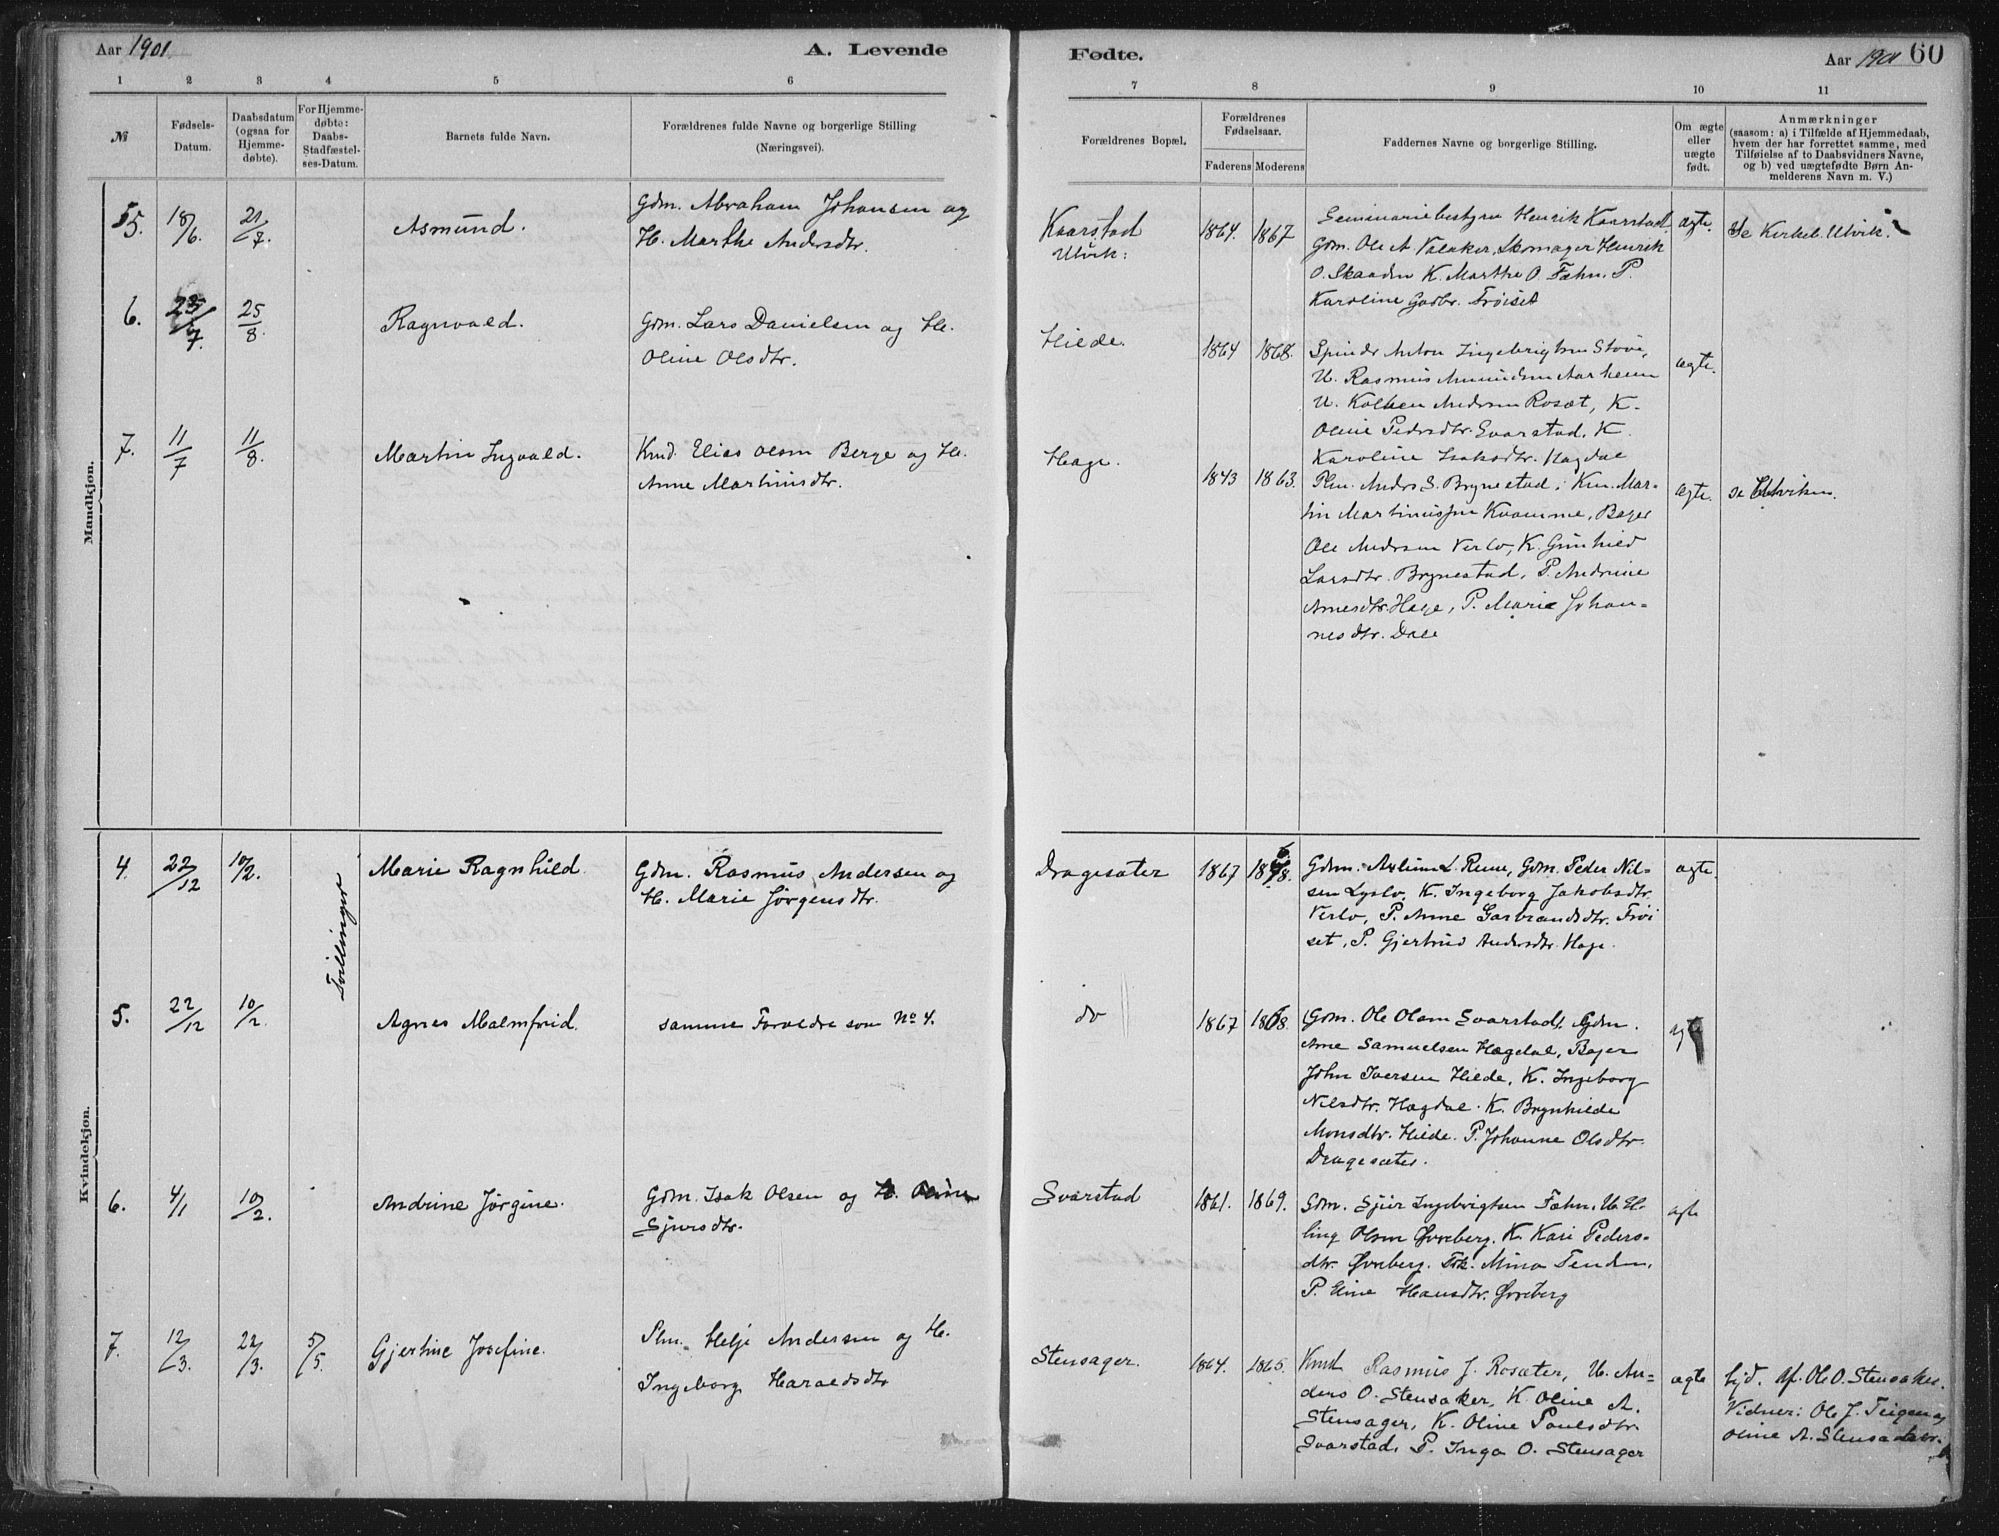 Aar 1901.
A. Levende
Fødte.
Aar 1901
60
1 2 3 4 5 6 7 8 9 10 11
№
Fødsels-
Datum.
Daabsdatum
(ogsaa for
Hjemme-
døbte).
For Hjemme-
døbte:
Daabs-
Stadfæstel-
ses-Datum.
Barnets fulde Navn.
Forældrenes fulde Navne og borgerlige Stilling
(Næringsvei).
Forældrenes Bopæl.
Forældrenes
Fødselsaar.
Faderens
Moderens
Faddernes Navne og borgerlige Stilling.
Om ægte
eller
uægte
født.
Anmærkninger
(saasom: a) i Tilfælde af Hjemmedaab,
hvem der har forrettet samme, med
Tilføielse af to Daabsvidners Navne,
og b) ved uægtefødte Børn An-
melderens Navn m. V.)
Mandkjøn.
5. 18/6. 21/7. Asmund.
Gdm. Abraham Johansen og
H. Marthe Andersdtr.
Kaarstad
Utvik:
1864. 1867
Seminariebestyrer Henrik Kaarstad,
Gdm. Ole A Valaker, Skomager Henrik
O. Skaaden K. Marthe O Fæhn. P.
Karoline Gabr. Frøiset
ægte.
Se Kirkeb. Utvik.
6. 23/7. 25/8. Ragnvald.
Gdm. Lars Danielsen og H.
Oline Olsdtr.
Hilde.
1864 1868.
Anton Ingebrigtsen Støve,
U. Rasmus Amundsen Aarheim
U. Kolbein Andersen Rosæt, K.
Oline Pedersdtr. Svarstad, K.
Karoline Isaksdtr. Hagdal
ægte.
7. 11/7 11/8. Martin Ingvald.
Kmd. Elias Olsen Berge og H.
Anne Martinusdtr.
Hage.
1843 1863.
Plm. Anders S. Brynestad, Km. Mar-
tin Martinussen Kvamme, Bager
Ole Andersen Verlo, K. Gunhild
Larsdtr. Brynestad, P. Andrine
Arnesdtr. Hage, P. Marie Johan-
nesdtr. Dale
ægte.
se Utviken.
Kvindekjøn.
Tvillinger
4. 22/12 10/2. Marie Ragnhild.
Gdm. Rasmus Andersen og
H. Marie Jørgensdtr.
Dragesæter
1867 1868.
Gdm. L. Rune, Gdm. Peder Nil-
sen Lyslo, K. Ingeborg Jakobsdtr.
Verlo, P. Anne Garbrandsdtr. Frøi
set, P. Gjertrud Andersdtr. Hage.
ægte.
5. 22/12 10/2. Agnes Malmfrid.
samme Forældre som No 4.
do
1867 1868.
Gdm. Ole Olsen Svarstad, Gdm.
Arne Samuelsen Hægdal, Bager
John Iversen Hilde, K. Ingeborg
Nilsdtr. Hægdal. K. Brynhilde
Monsdtr. Hilde. P. Johanne Olsdtr
Dragesæter.
6. 4/1 10/2. Andrine Jørgine.
Gdm. Isak Olsen og H. Oline
Sjursdtr.
Svarstad
1861. 1869.
Gdm. Sjur Ingebrigtsen Fæhn. U. El-
ling Olsen Øvreberg. K. Kari Peders-
dtr. Øvreberg. Frk. Mina Tenden.
P. Eline Hansdtr. Øvreberg
ægte
7. 12/3. 22/3. 5/5. Gjertine Josefine.
Plm. Helje Andersen og H.
Ingeborg Haraldsdtr
Stensager.
1864. 1865.
Kmd Rasmus J. Rosæter, U. An-
ders O. Stensaker, K. Oline A.
Stensager, K. Oline Paulsdtr.
Svarstad, P. Inga O. Stensager
ægte
hjd. af Ole O. Stensaker.
Vidner: Ole J. Teigen og
Oline A. Stensaker.